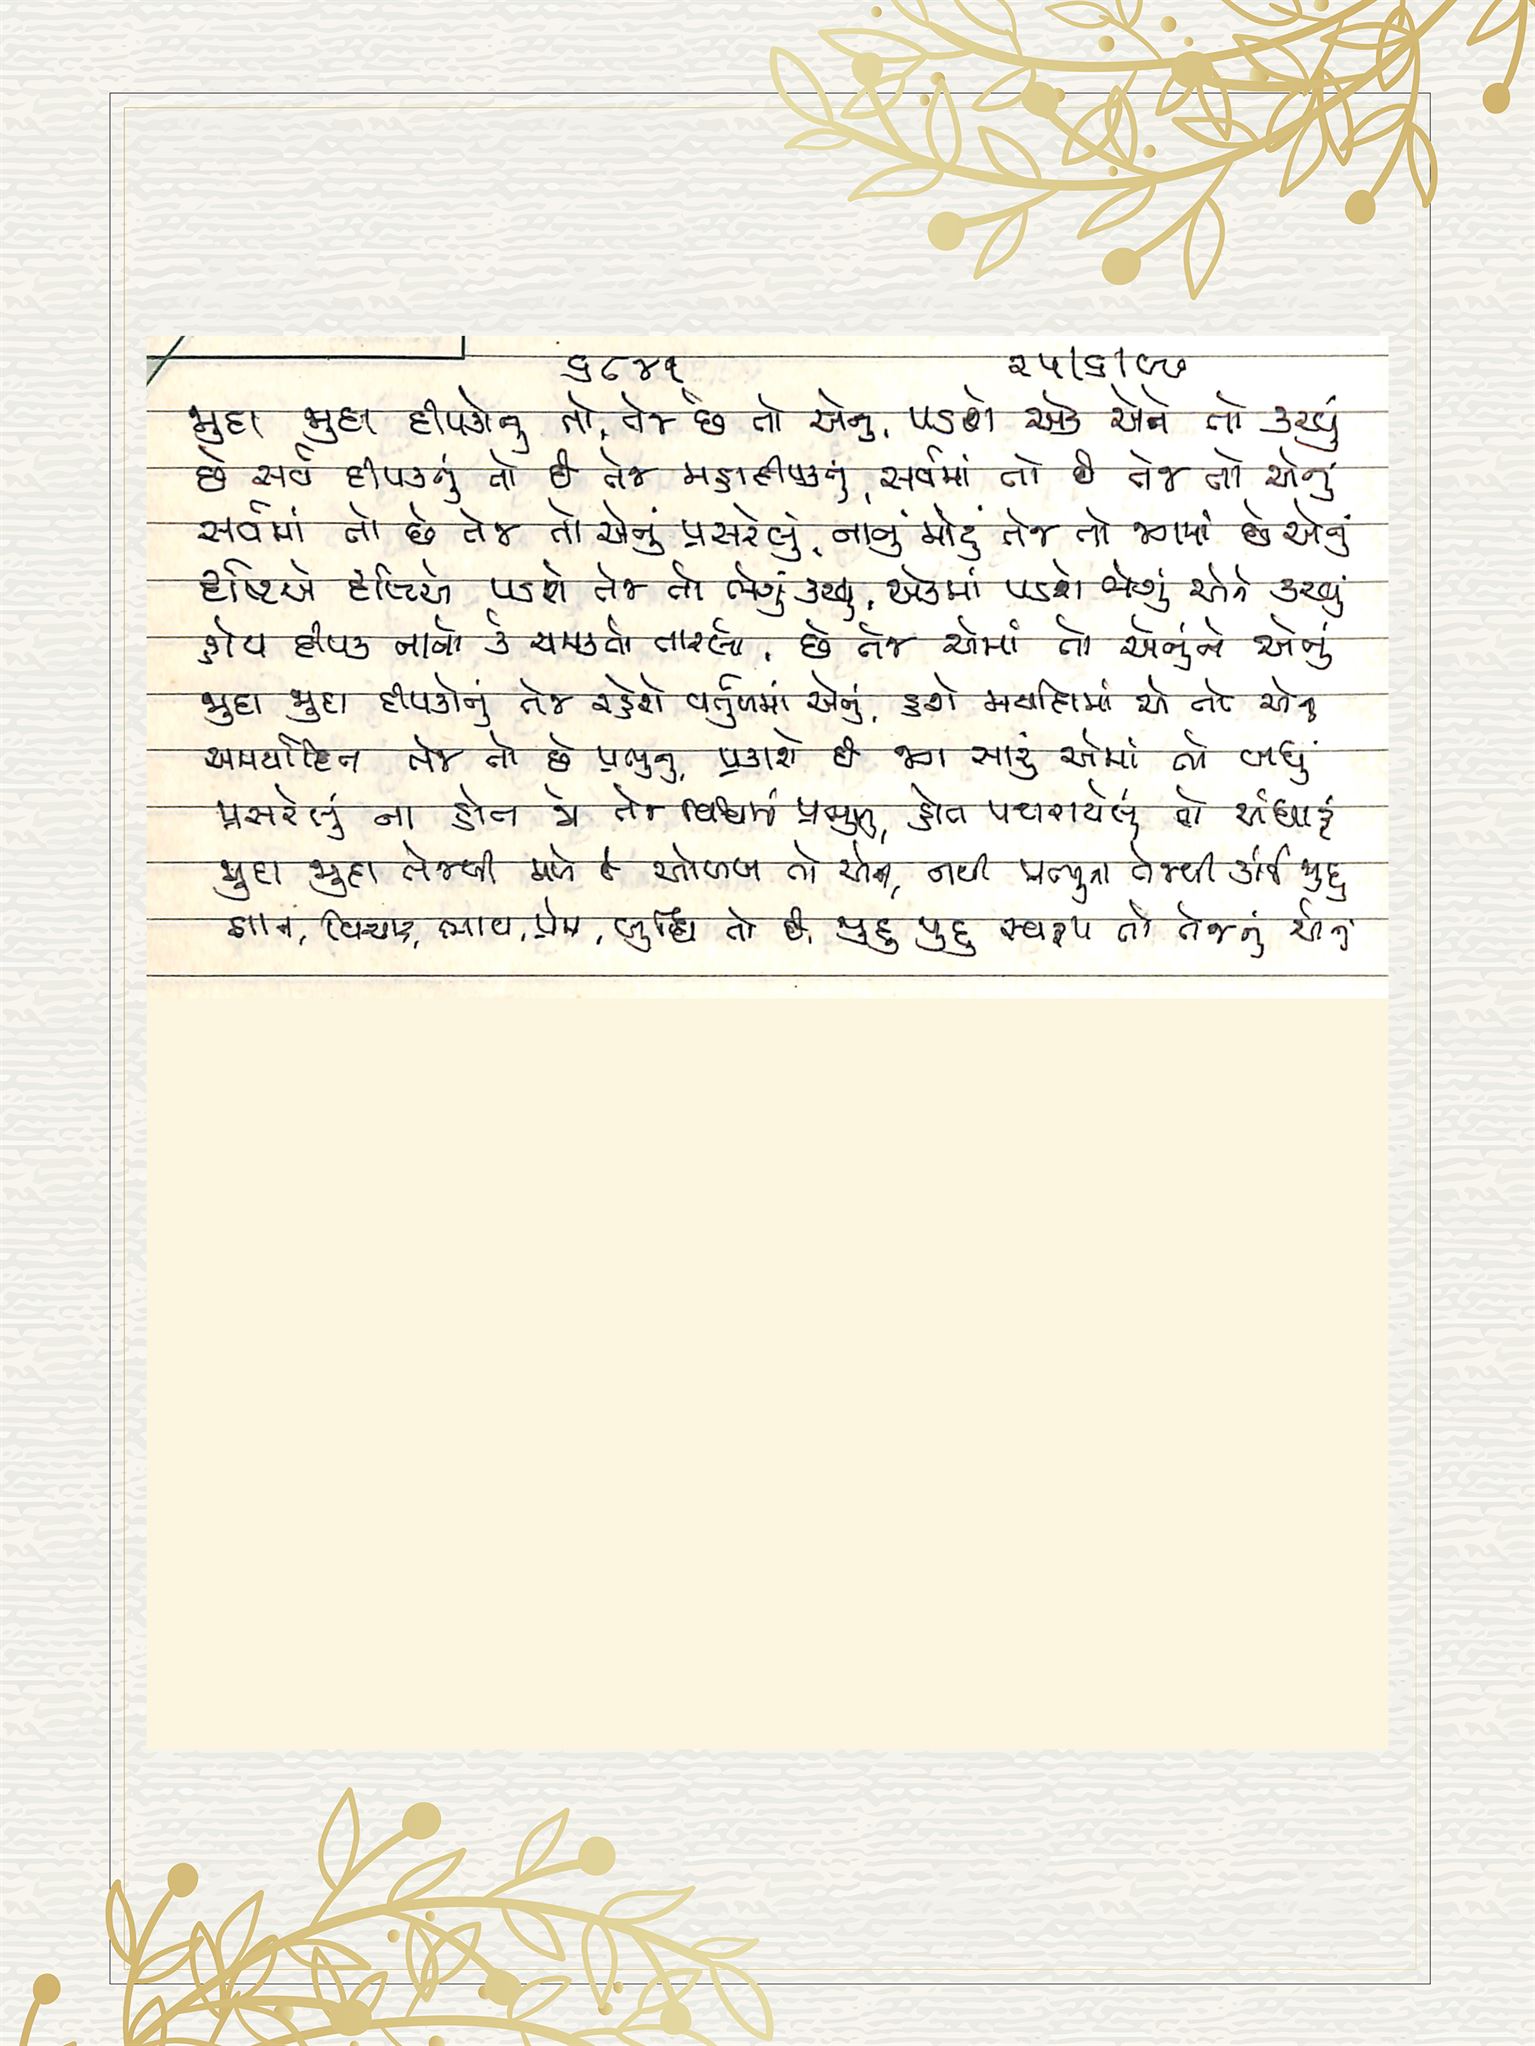 ૬૮૪૧ ૨૫/૬/૯૭
જુદા જુદા દીપકોનુ તો, તેજ છે તો એનુ, પડશે એક એને તો કરવું
છે સર્વ દીપકનું તો જી તેજ મહાદીપકનું, સર્વમાં તો જી તેજ તો એનું
સર્વમાં તો છે તેજ તો એનું પ્રસરેલું, નાનું મોટું તેજ તો જગમાં છે એનું
દૃષ્ટિએ દૃષ્ટિએ પડશે તેજ તો ભેગું કરવુ, એકમાં પડશે ભેગું એને કરવું
હોય દીપક નાનો કે ચમકતો તારલો, છે તેજ એમાં તો એનુંને એનું
જુદા જુદા દીપકોનું તેજ રહેશે વર્તુળમાં એનું, હશે મર્યાદિમાં એ તો એનુ
અમર્યાદિત તેજ તો છે પ્રભુનુ, પ્રકાશે જી જગ સારું એમાં તો બધું
પ્રસરેલું ના હોત જો તેજ વિશ્વમાં પ્રભુનુ, હોત પથરાયેલું તો અંધારું
જુદા જુદા તેજથી મળે છે ઓળખ તો એની, નથી પ્રભુના તેજથી કાંઈ જુદુ
જ્ઞાન, વિચાર, ભાવ, પ્રેમ, બુદ્ધિ તો જી, જુદુ જુદુ સ્વરૂપ તો તેજનું એનું